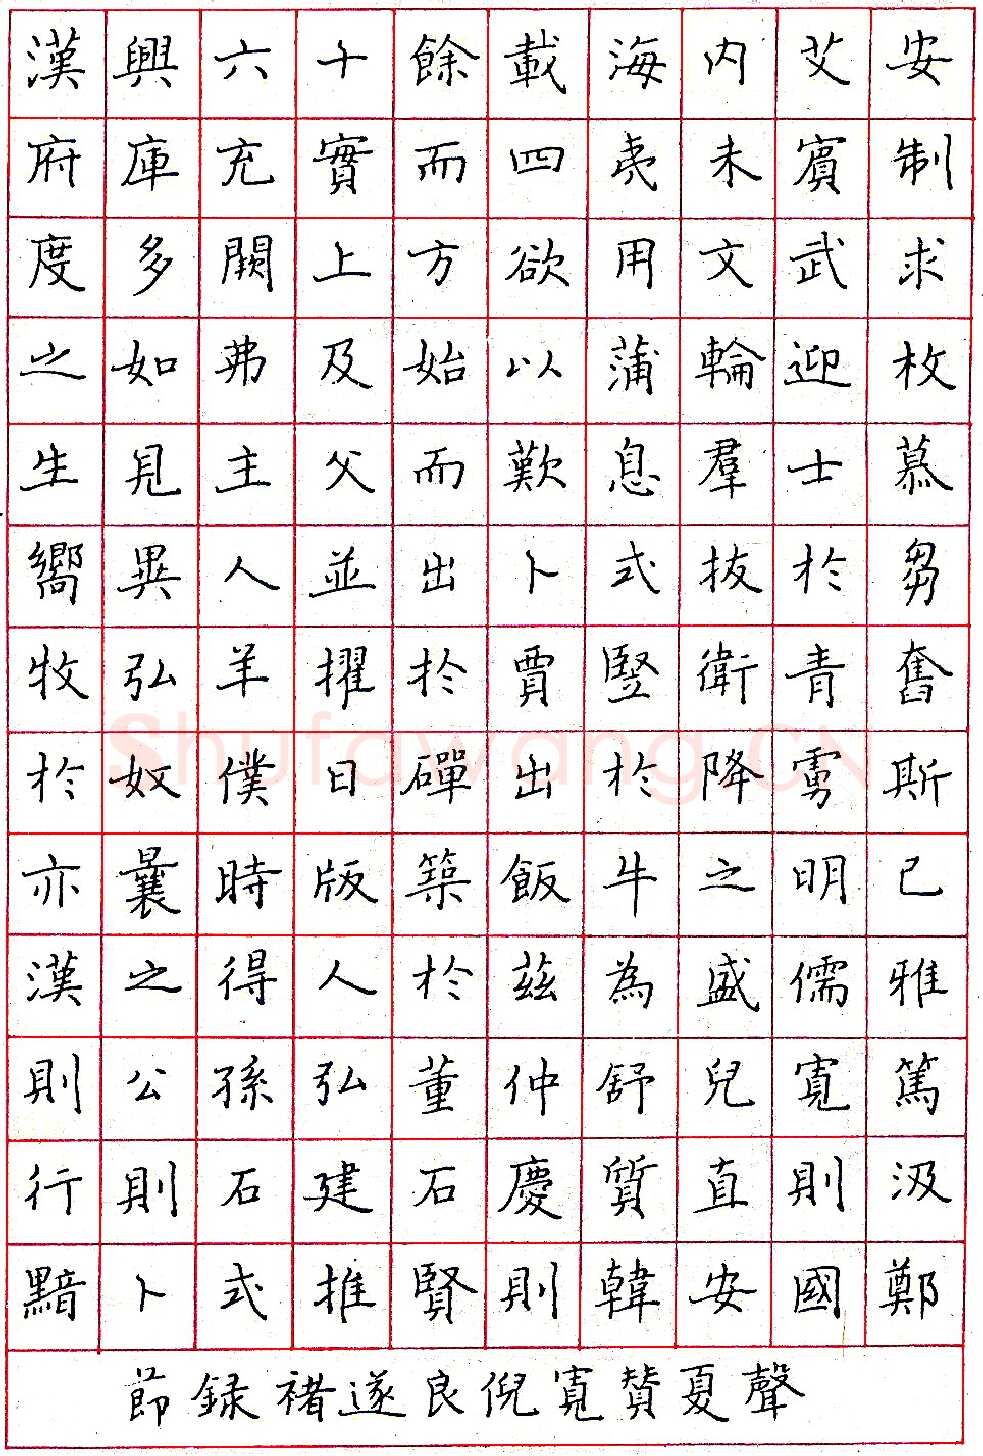 漢興六十餘載海内艾安
府庫充實而四夷未賓制
度多闕上方欲用文武求
之如弗及始以蒲輪迎枚
生見主父而歎息羣士慕
嚮異人並出卜式拔於芻
牧弘羊擢於賈豎衛青奮
於奴僕日磾出於降虜斯
亦曩時版築飯牛之明已
漢之得人於茲為盛儒雅
則公孫弘董仲舒兒寬篤
行則石建石慶質直則汲
黯卜式推賢則韓安國鄭
節録褚遂良倪寬贊夏聲
Shufawang.CN